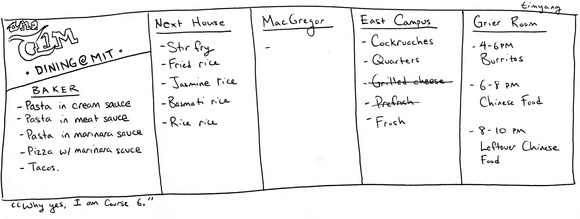 timyang
CIM
• DINING@MIT •
BAKER
- Pasta in cream sauce
- Pasta in meat sauce
- Pasta in marinara sauce
- Pizza w/ marinara sauce
- Tacos.
Next House
- Stir fry
- Fried rice
- Jasmine rice
- Basmati rice
- Rice rice
MacGregor
-
East Campus
- Cockroaches
- Quarters
- Grilled cheese
- Prefrosh
- Frosh
Grier Room
- 4-6PM
Burritos
- 6-8 PM
Chinese Food
- 8-10 PM
Leftover Chinese
Food
"Why yes, I am Course 6."